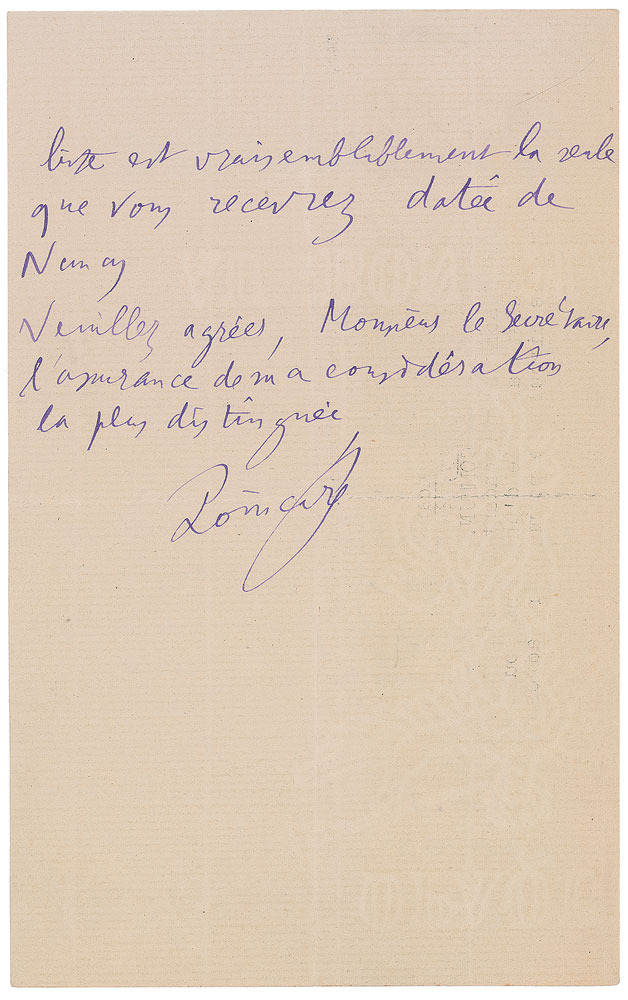 liste est vraisemblablement la seule
que vous recevrez datée de
Nancy
Veuillez agréer, Monsieur le Secrétaire,
l'assurance de ma considération
la plus distinguée
Poincaré